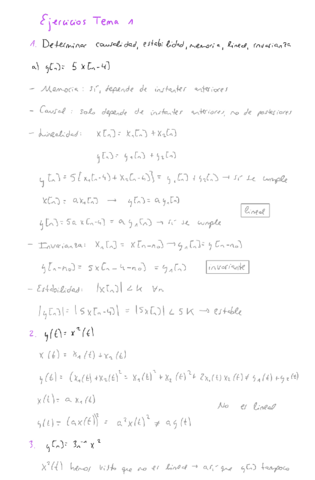 Ejercicios Tema 1
1. Determinar causalidad, estabilidad, memoria, lineal, invarianza
a) y[n] = 5 x[n-4]
- Memoria: Sí, depende de instantes anteriores
- Causal: Solo depende de instantes anteriores, no de posteriores
- Linealidad: x[n] = x₁[n] + x₂[n]
y[n] = y₁[n] + y₂[n]
y[n] = 5{x₁[n-4] + x₂[n-4]} = y₁[n] + y₂[n] → sí se cumple
x[n] = a x₁[n] → y[n] = a y₁[n]
y[n] = 5a x[n-4] = a y₁[n] → sí se cumple
lineal
- Invarianza: x₁[n] = x[n-n₀] → y₁[n] = y[n-n₀]
y[n-n₀] = 5x[n-4-n₀] = y₁[n]
invariante
- Estabilidad: |x[n]| < K ∀n
|y[n]| = |5x[n-4]| = |5x[n]| < 5K → estable
2. y(t) = x²(t)
x(t) = x₁(t) + x₂(t)
y(t) = (x₁(t) + x₂(t))² = x₁(t)² + x₂(t)² + 2x₁(t)x₂(t) ≠ y₁(t) + y₂(t)
x(t) = a x₁(t)
No es lineal
y(t) = (ax(t))² = a²x(t)² ≠ a y(t)
3. y[n] = 3n x²
x²(t) hemos visto que no es lineal → así que y[n] tampoco